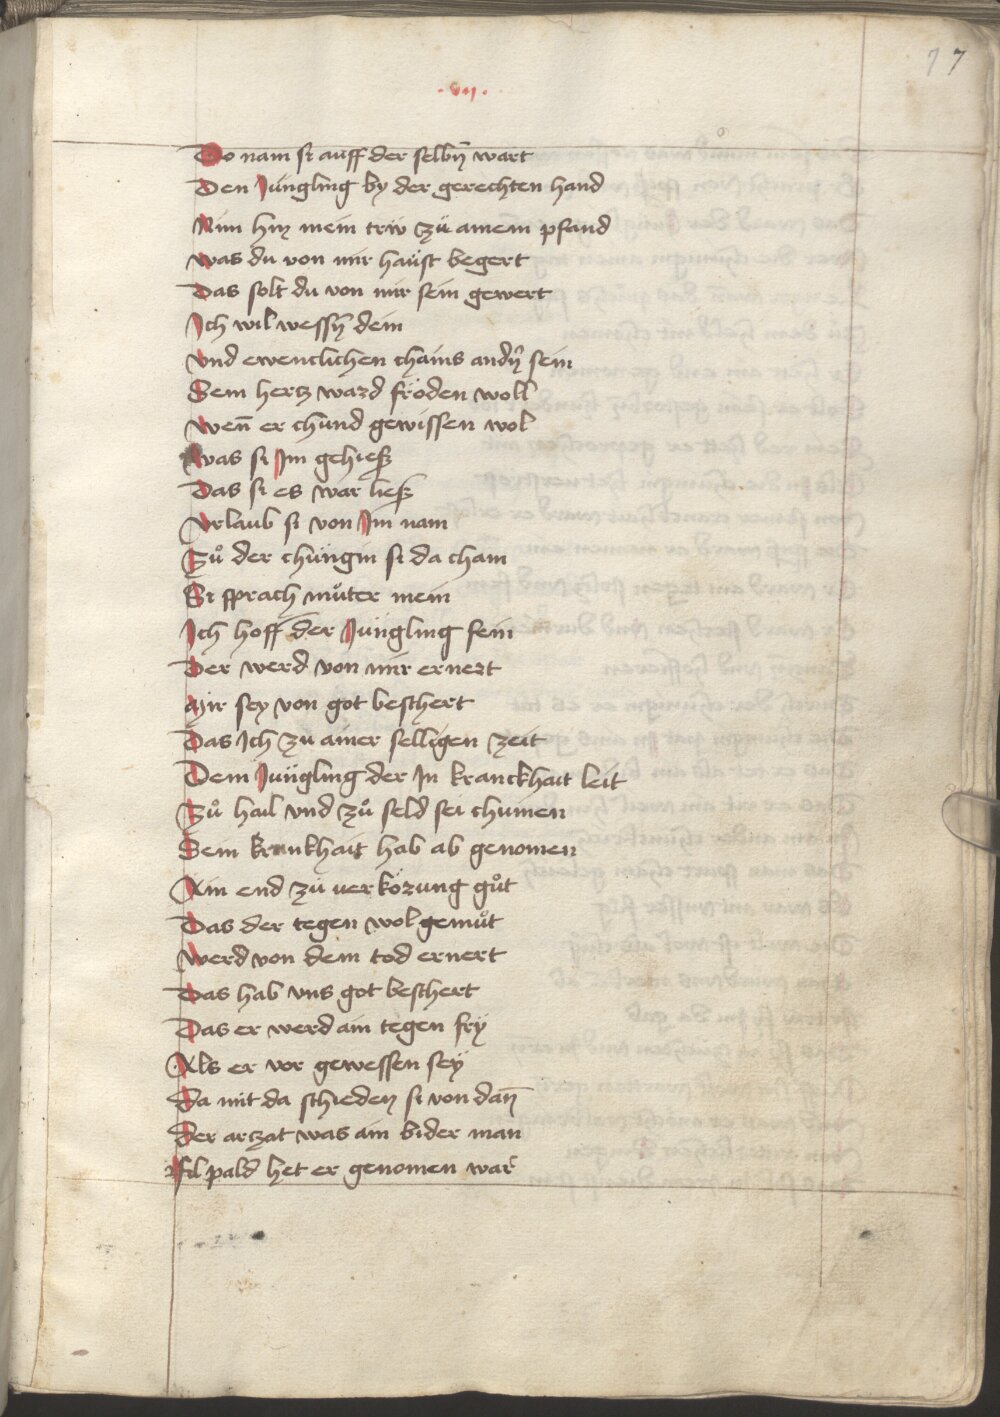 7 7
·vij·
Do nam si auff der selbñ wart
Den Jungling by der gerechten hand
Nim hin mein triw zü ainem pfand
was du von mir haüst begert
Das solt du von mir sein gewert
Ich wil wessñ dein
vnd ewenclichen chains andr̃ sein
Sein hertz ward fröden woll
wen̄ er chund gewissen wol
was si Im gehiesz
Das si es war liesz
vrlaub si von Im nam
Zů der chüngin si da cham
Si sprach můter mein
Ich hoff der Jüngling sein
Der werd von mir ernert
Mir sey von got beschert
Das Ich zu ainer selligen zeit
Dem Jüngling der In kranckhait leit
Zů hail vnd zů seld sei chumen
Sein krankhait hab ab genomen
Ain end zü uerkörung gůt
Das der tegen wol gemůt
werd von dem tod ernert
Das hab vns got beschert
Das er werd ain tegen frÿ
Als er vor gewessen seÿ
Da mit da schieden si von dan̄
der arczat was ain bider man
fil pald het er genomen war